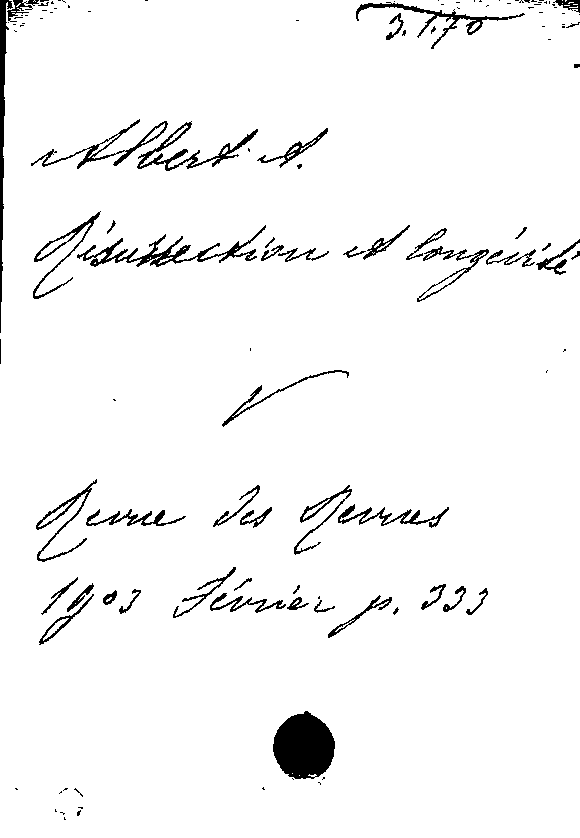 3.1.70
Albert A.
Résurrection et longévité
Revue des Revues
1903 Février p. 333